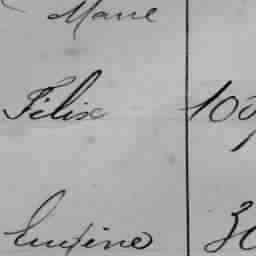 Marie
Félix 109
Eugène 30